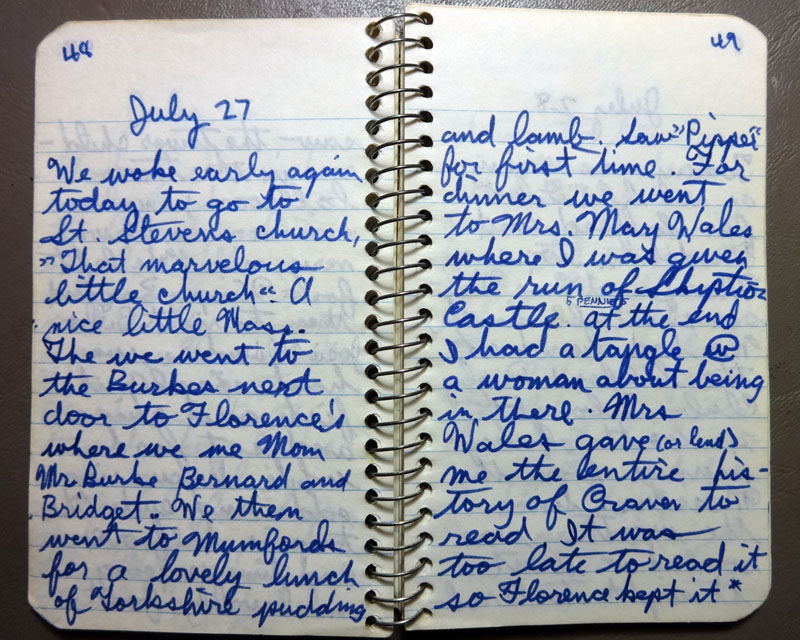 48
July 27
We woke early again
today to go to
St. Stevens church,
"That marvelous
little church" A
nice little Mass.
The we went to
the Burkes next
door to Florence's
where we me Mom
Mr. Burke Bernard and
Bridget. We then
went to Mumfords
for a lovely lunch
of Yorkshire pudding
49
and lamb. Saw "Pippet"
for first time. For
dinner we went
to Mrs. Mary Wales
where I was given
the run of Skipton
5 PENNIES
Castle. at the end
I had a tangle w
a woman about being
in there. Mrs
Wales gave (or lend)
me the entire his-
tory of Craven to
read It was
too late to read it
so Florence kept it *